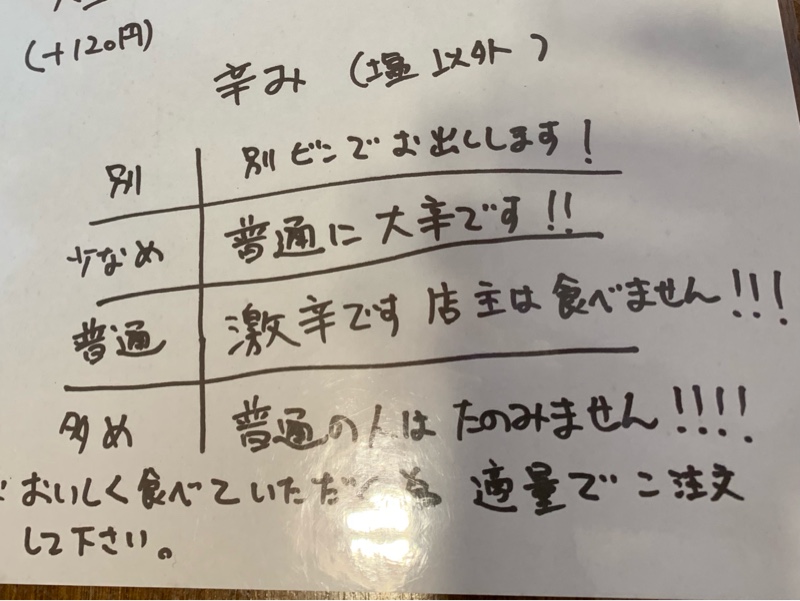 (+120円)
辛み (塩以外)
別 別ビンでお出しします!
少なめ 普通に大辛です!!
普通 激辛です 店主は食べません!!!
多め 普通の人はたのみません!!!!
おいしく食べていただく為 適量でご注文
して下さい。